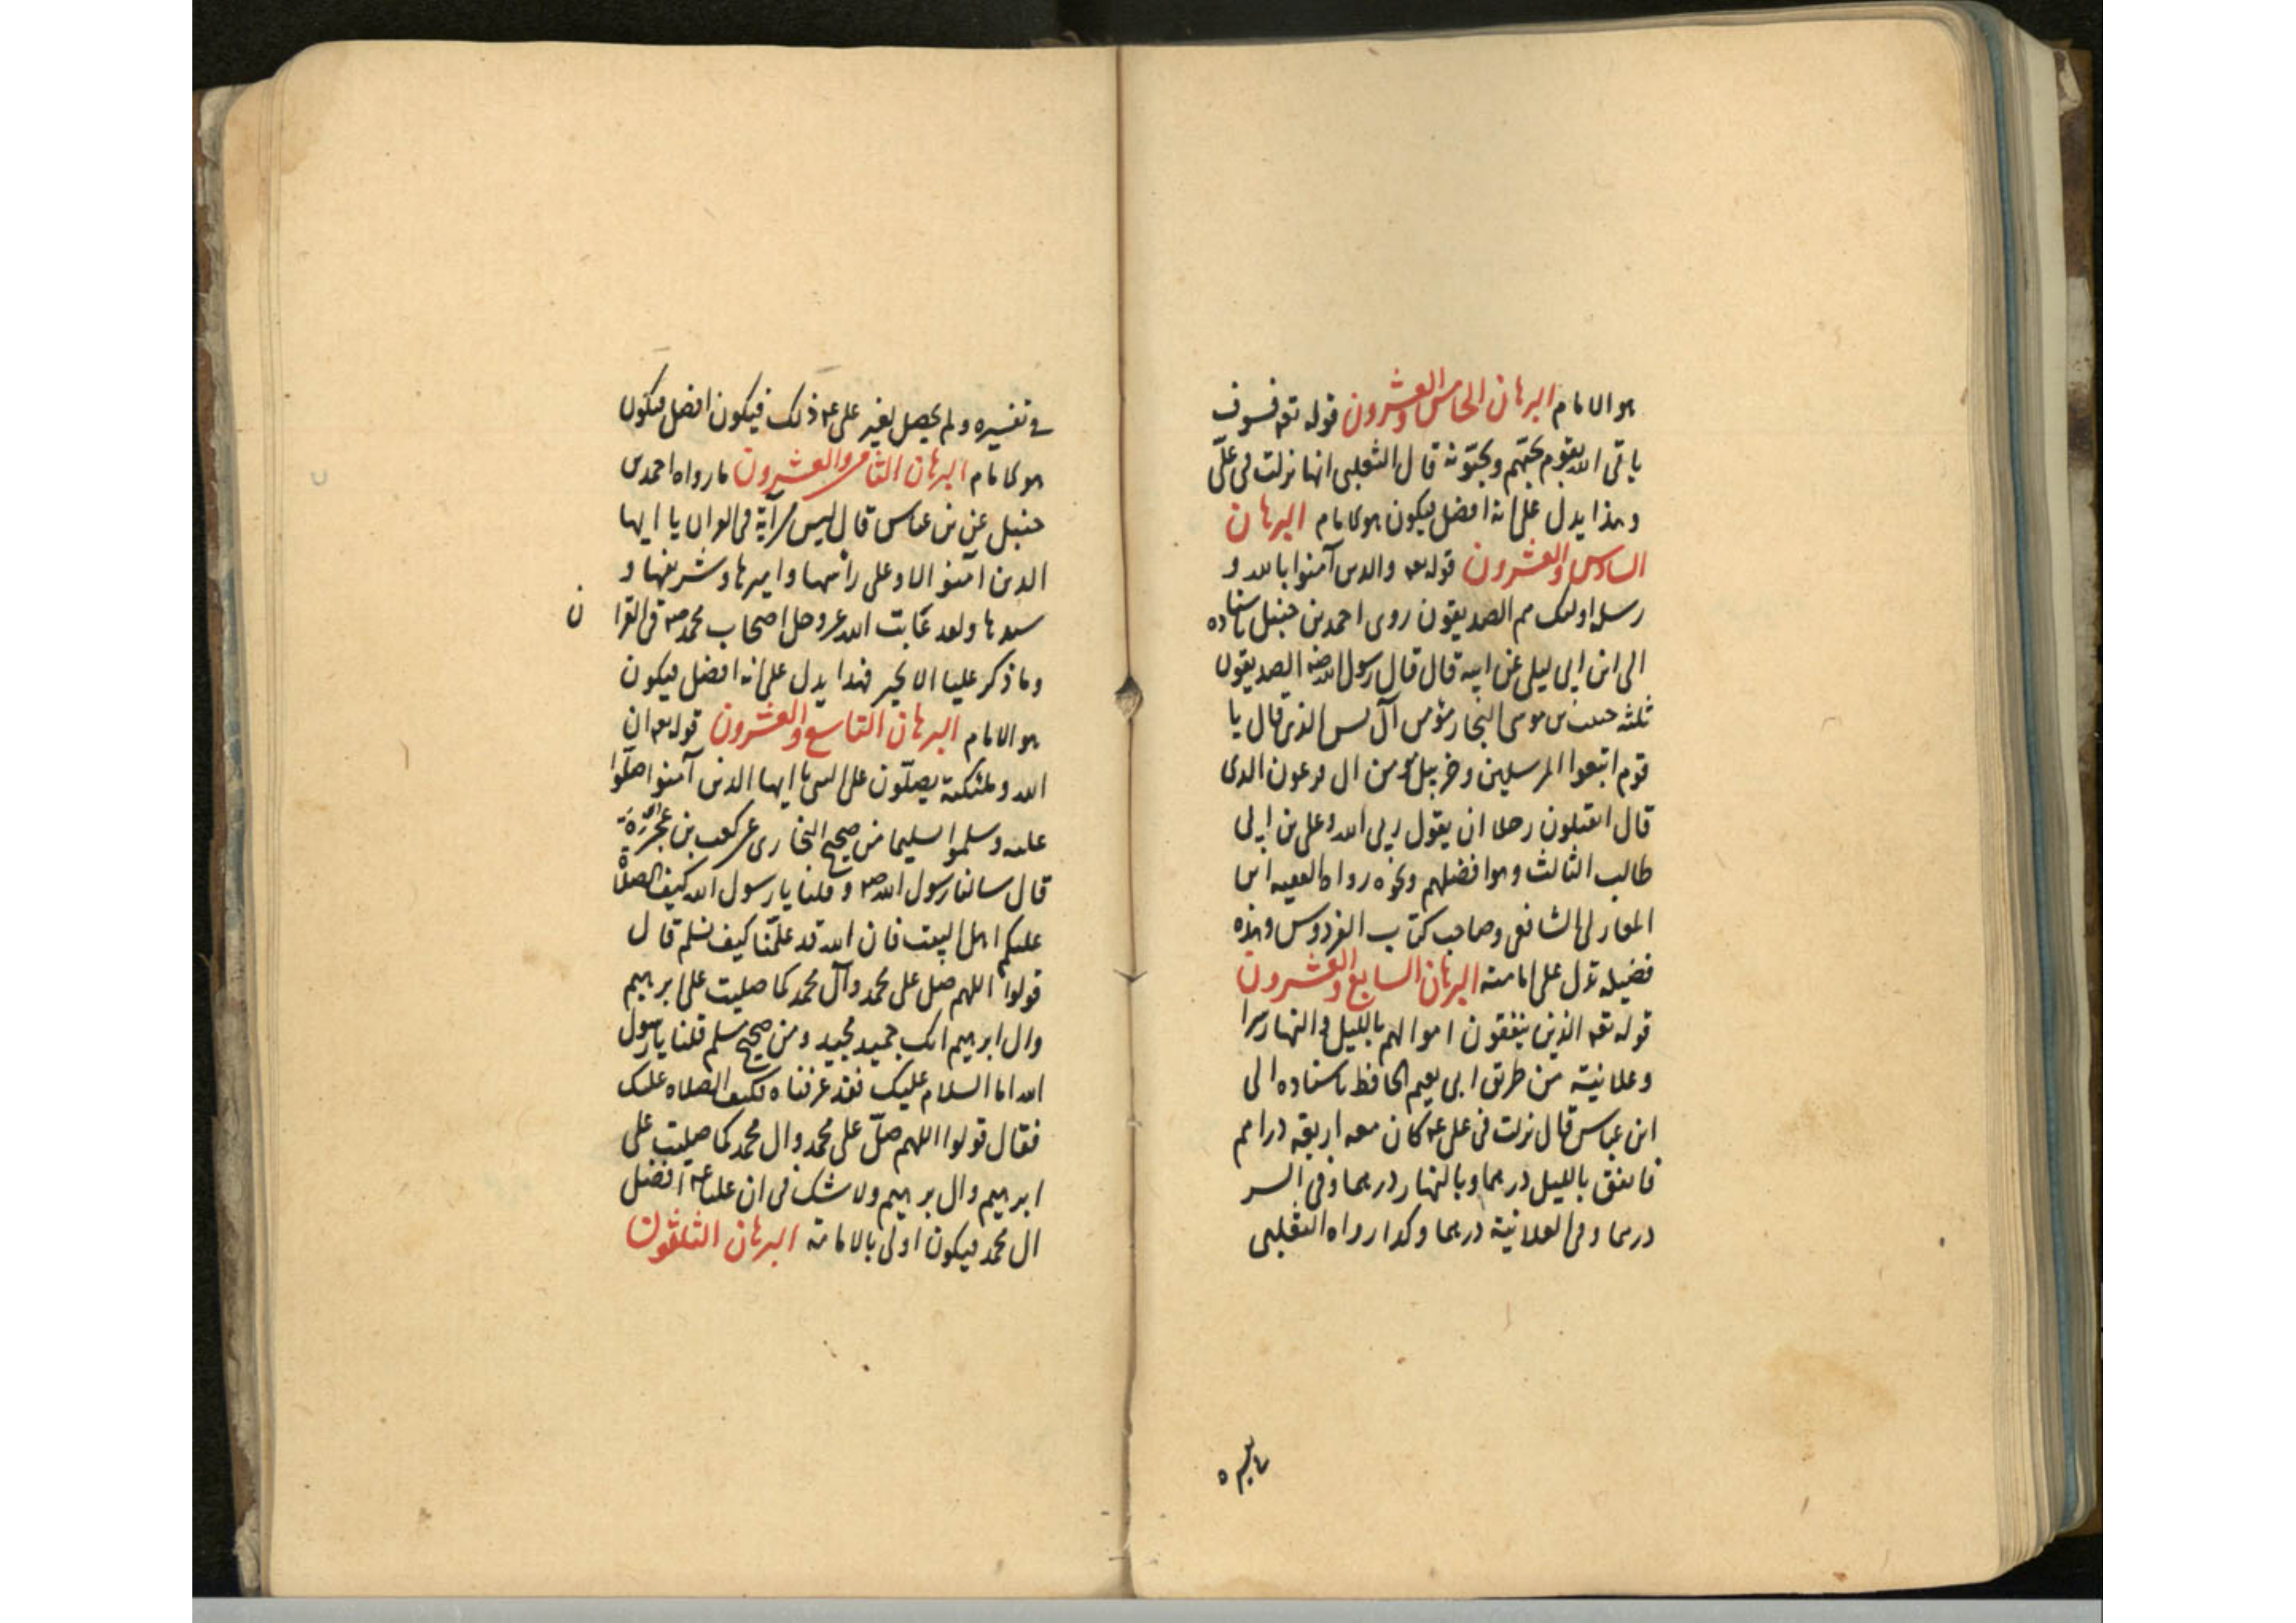 هو الامام البرهان الخامس والعشرون قوله تعه فسوف
ياتى الله بقوم يحبّهم ويحبّونه قال الثعلبى انها نزلت فى علىّ
وهذا يدل على انه افضل فيكون هو الامام البرهان
السادس والعشرون قوله تعه والذين آمنوا بالله و
رسله اولئك هم الصديقون روى احمد بن حنبل باسناده
الى ابن ابى ليلى عن ابيه قال قال رسول الله صه الصديقون
ثلثه حبيب بن موسى النجار مؤمن آل يس الذى قال يا
قوم اتبعوا المرسلين وخربيل مومن ال فرعون الذى
قال اتقتلون رجلا ان يقول ربى الله وعلى بن ابى
طالب الثالث وهو افضلهم ونحوه رواه الفقيه ابن
المغازلى الشافعى وصاحب كتاب الفردوس وهذه
فضيله تدل على امامته البرهان السابع والعشرون
قوله تعه الذين ينفقون اموالهم بالليل والنهار سرا
وعلانية من طريق ابى نعيم الحافظ باسناده الى
ابن عباس قال نزلت فى على عه كان معه اربعة دراهم
فانفق بالليل درهما وبالنهار درهما وفى السر
درهما وفى العلانية درهما وكذا رواه الثعلبى
فى تفسيره ولم يحصل لغير على عه ذلك فيكون افضل فيكون
هو الامام البرهان الثامن والعشرون ما رواه احمد بن
حنبل عن بن عباس قال ليس من آية فى القران يا ايها
الذين امنوا الا وعلى راسها واميرها وشريفها و
سيدها ولقد عاتب الله عز وجل اصحاب محمد صه فى القرا ن
وما ذكر عليا الا بخير فهذا يدل على انه افضل فيكون
هو الامام البرهان التاسع والعشرون قوله تعه ان
الله وملئكته يصلّون على النبى يا ايها الذين آمنوا صلّوا
عليه وسلموا تسليما من صحيح البخارى عن كعب بن عُجْرَة
قال سالنا رسول الله صه وقلنا يا رسول الله كيف الصلاة
عليكم اهل البيت فان الله قد علّمنا كيف نسلم قال
قولوا اللهم صل على محمد وآل محمد كما صليت على ابرهيم
وال ابرهيم انك حميد مجيد ومن صحيح مسلم قلنا يا رسول
الله اما السلام عليك فقد عرفناه فكيف الصلاه عليك
فقال قولوا اللهم صلّ على محمد وال محمد كما صليت على
ابرهيم وال برهيم ولا شك فى ان عليا عه افضل
ال محمد فيكون اولى بالامامة البرهان الثلثون